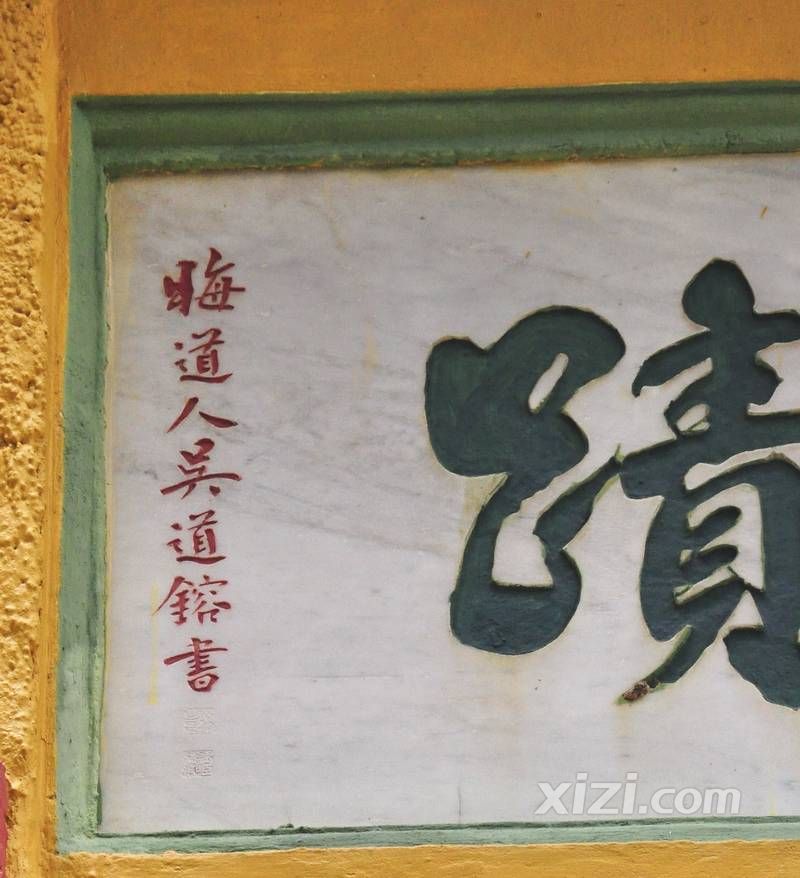 蹟
晦道人吳道鎔書
xizi.com